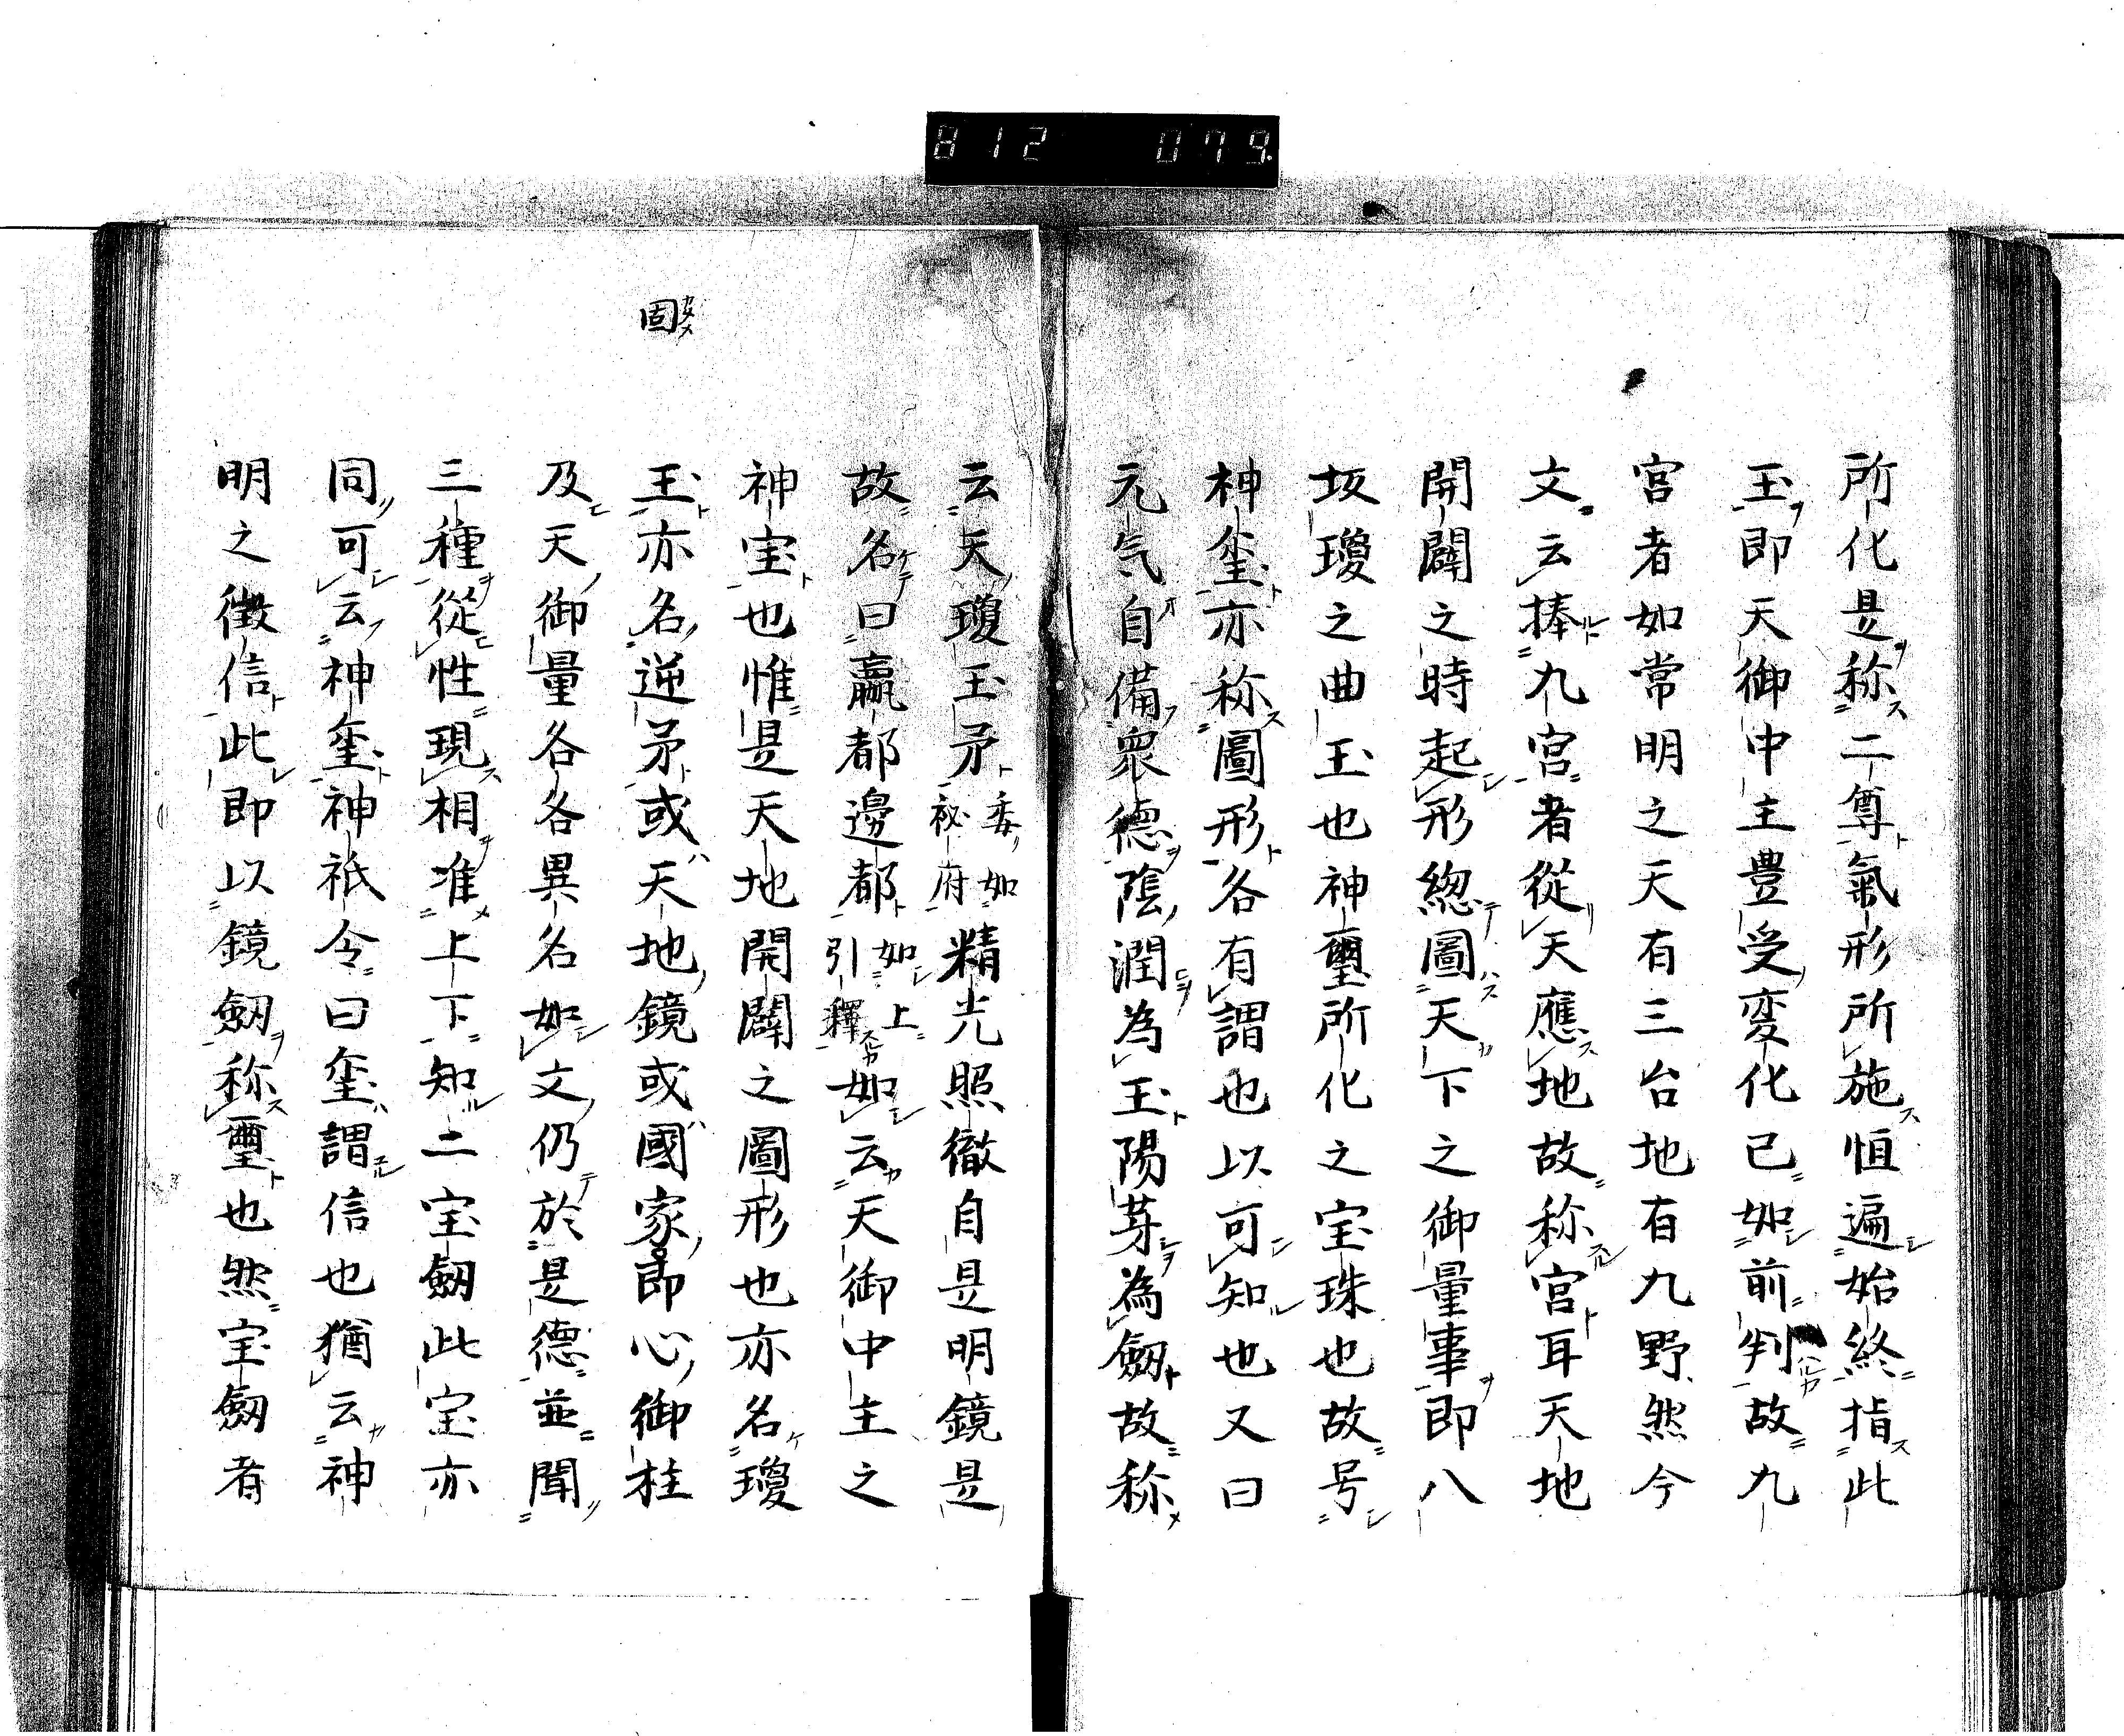 812 079.
所化是称二尊氣形所施恒遍始終指此
玉即天御中主豊受変化已如前判故九
宮者如常明之天有三台地有九野然今
文云捧九宮者從天應地故称宮耳天地
開闢之時起形惣圖天下之御量事即八
坂瓊之曲玉也神璽所化之宝珠也故号
神玺亦称圖形各有謂也以可知也又曰
元気自備衆德陰潤為玉陽芽為劔故称
云天瓊玉矛委如秘府精光照徹自是明鏡是
故名曰羸都邊都如上引釋如云天御中主之
神宝也惟是天地開闢之圖形也亦名瓊
固カタメ
玉亦名逆矛或天地鏡或國家即心御柱
及天御量各各異名如文仍於是德並聞
三種從性現相准上下知二宝劔此宝亦
同可云神玺神祇令曰玺謂信也猶云神
明之徴信此即以鏡劔称璽也然宝劔者